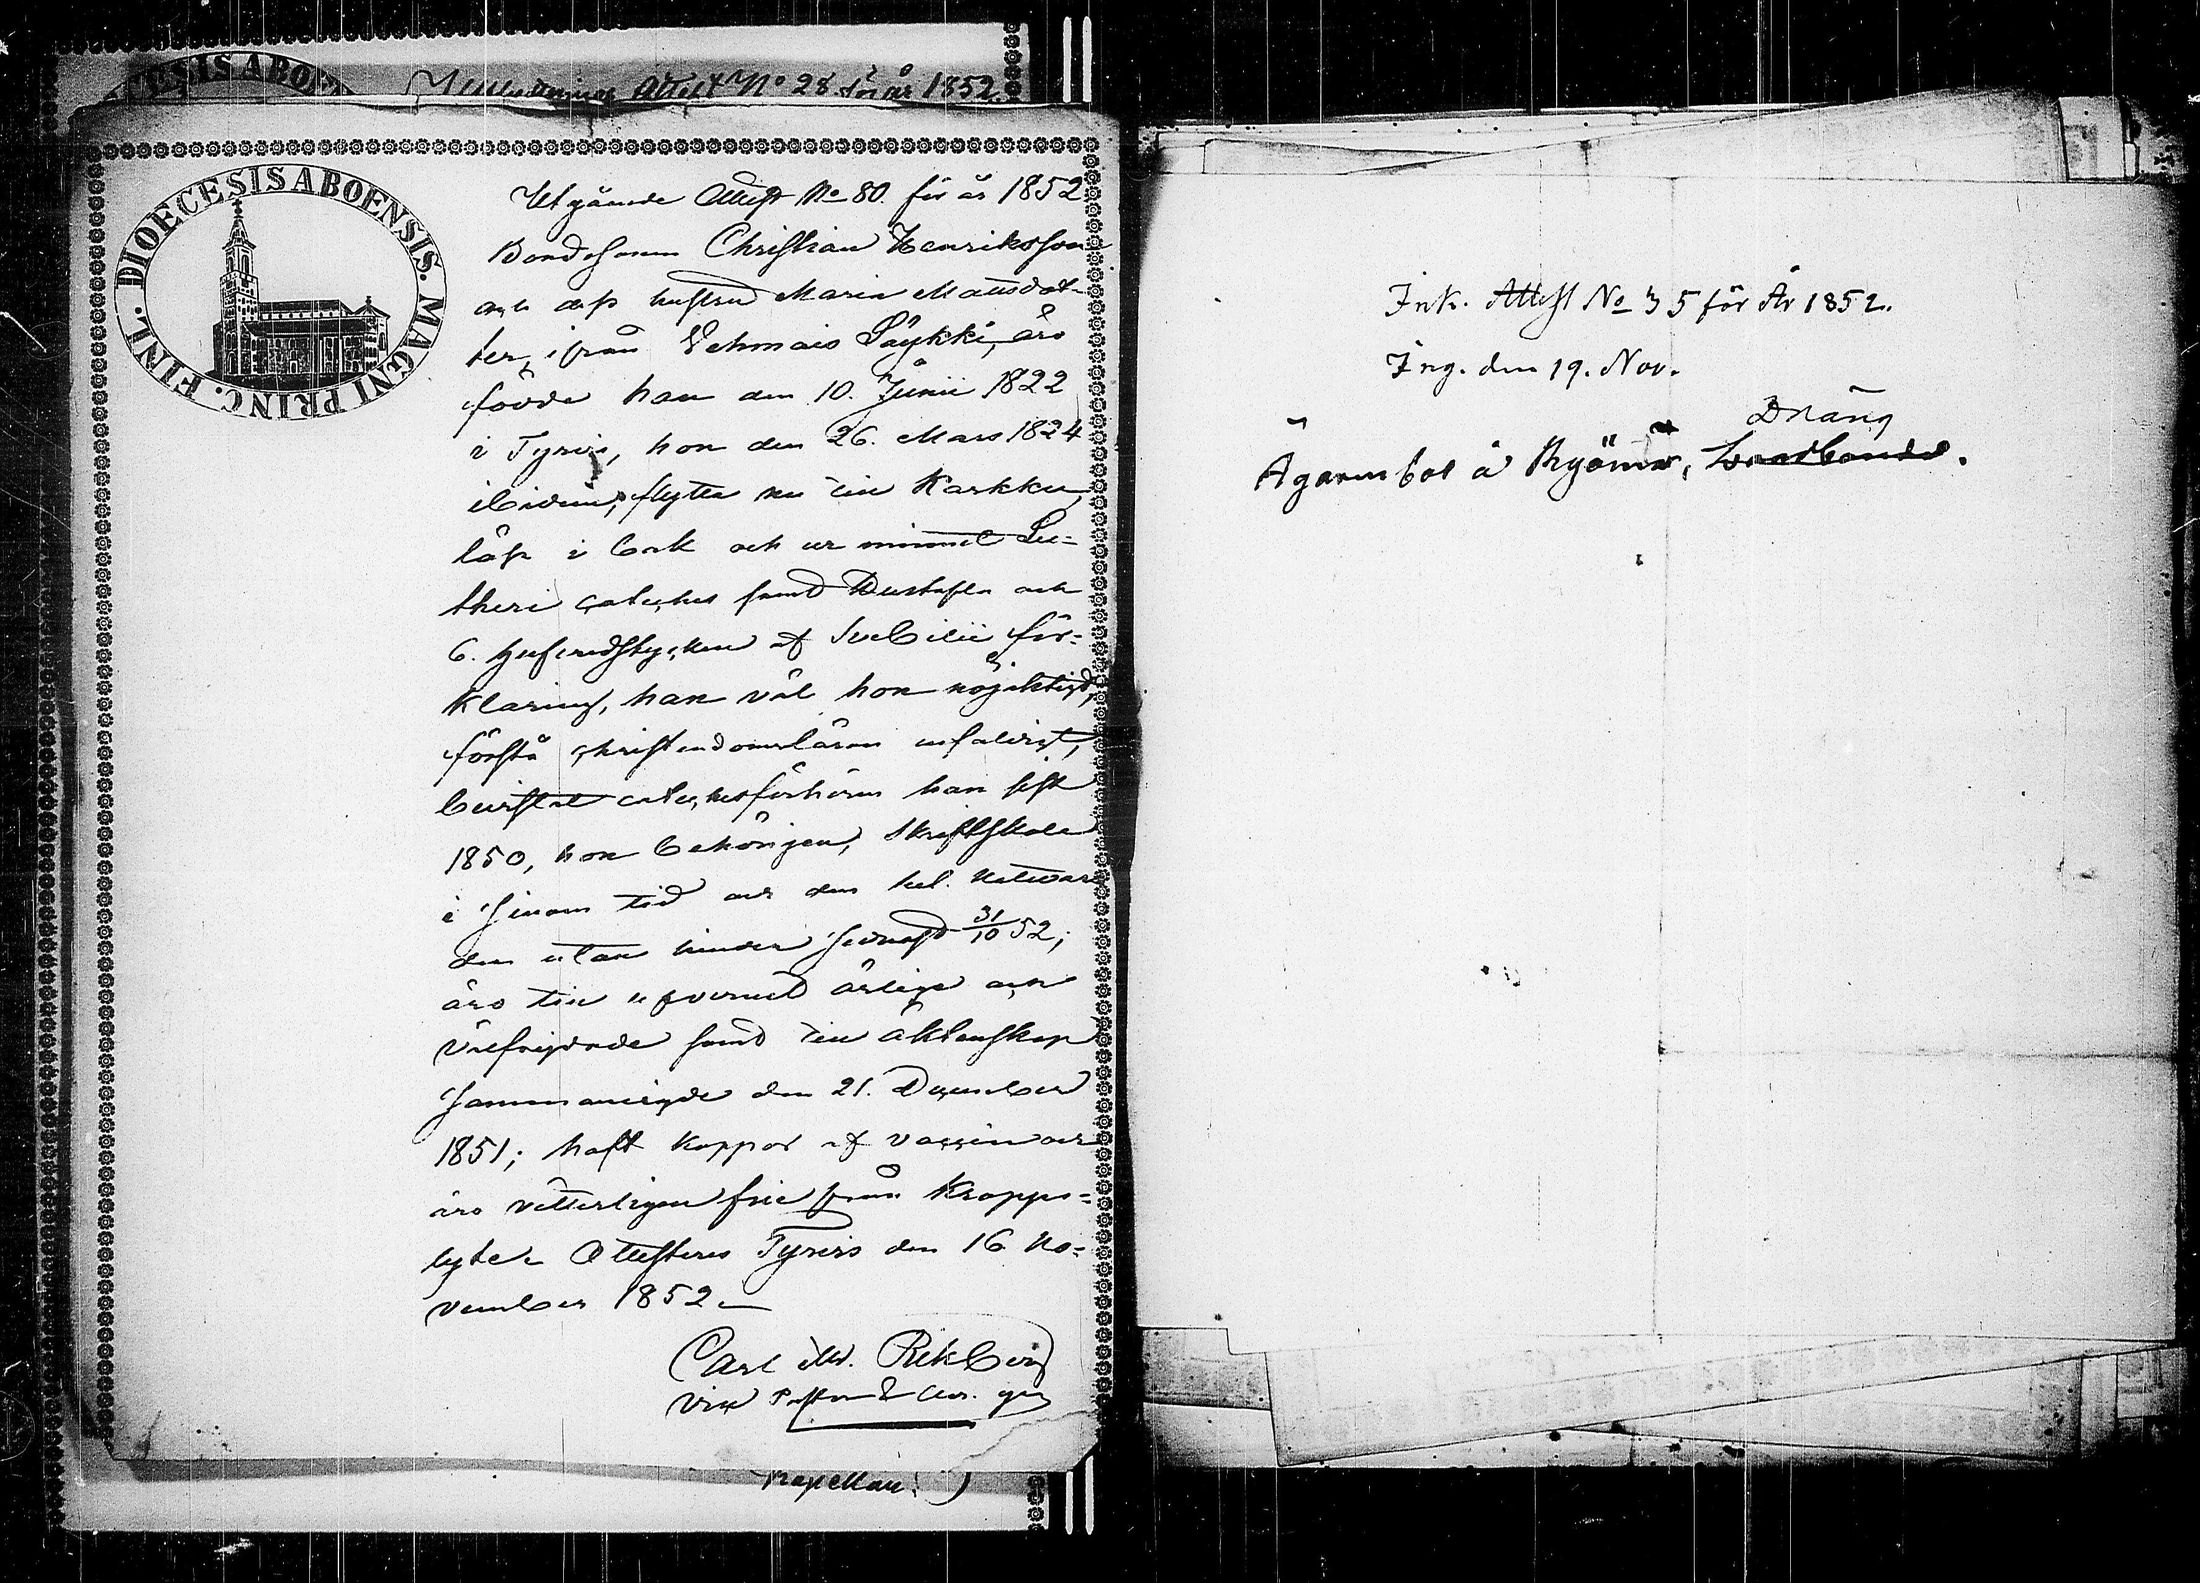 Attest No 28 för år 1852.
FINL. DIOECESIS ABOENSIS. MAGNI PRINC.
Utgående Attest No 80. för år 1852
Bondesonen Christian Henriksson
och dess hustru Maria Mattsdot-
ter, ifrån Vehmais Päykki, äro
födde han den 10. Junii 1822
i Tyrvis, hon den 26. Mars 1824
ibidem, flytta nu till Karkku,
läse i bok och ur minnet Lu-
theri cateches samt Hustaflan och
6. hufvudstycken af Svebilii för-
klaring, han väl hon nöjaktigt,
förstå christendomsläran enfaldigt,
bevistat catechesförhören han sist
1850, hon behörigen, Skriftskola
i sinom tid och den hel. Nattvar-
den utan hinder senast 31/10 52;
äro till uppvernad ärlige och
välfrejdade samt till äktenskap
sammanvigde den 21. December
1851; haft koppor af vaccin och
äro vetterligen frie från kropps-
lyte. Attesteras Tyrvis den 16 No-
vember 1852.
Carl M. Rekberg
Vice Pastor
Kapellan.
Ink. Attest No 35 för År 1852.
Ing. den 19. Nov.
Dräng
Ägarens bol å